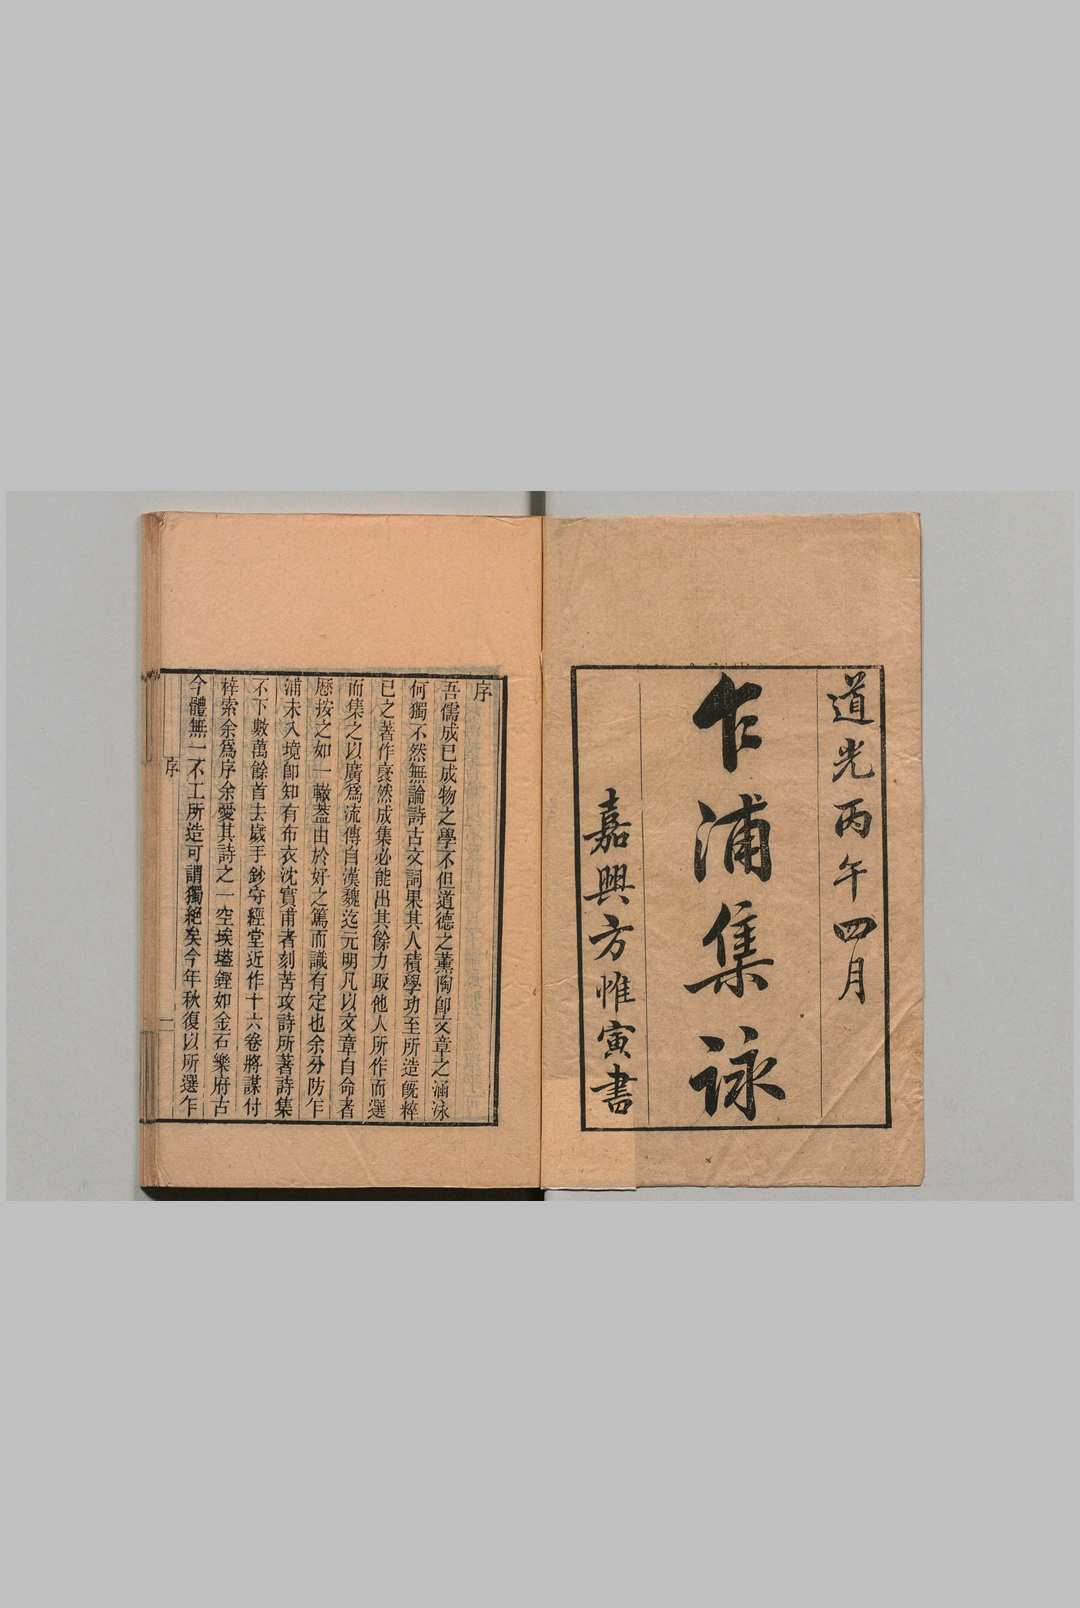 道光丙午四月
乍浦集詠
嘉興方惟寅書
序
吾儒成已成物之學不但道德之薰陶卽文章之涵泳
何獨不然無論詩古文詞果其人積學功至所造旣粹
已之著作裒然成集必能出其餘力取他人所作而選
而集之以廣爲流傳自漢魏迄元明凡以文章自命者
歷按之如一轍葢由於好之篤而識有定也余分防乍
浦未入境卽知有布衣沈實甫者刻苦攻詩所著詩集
不下數萬餘首去歲手鈔守經堂近作十六卷將謀付
梓索余爲序余愛其詩之一空埃壒鏗如金石樂府古
今體無一不工所造可謂獨絕矣今年秋復以所選乍
序
一